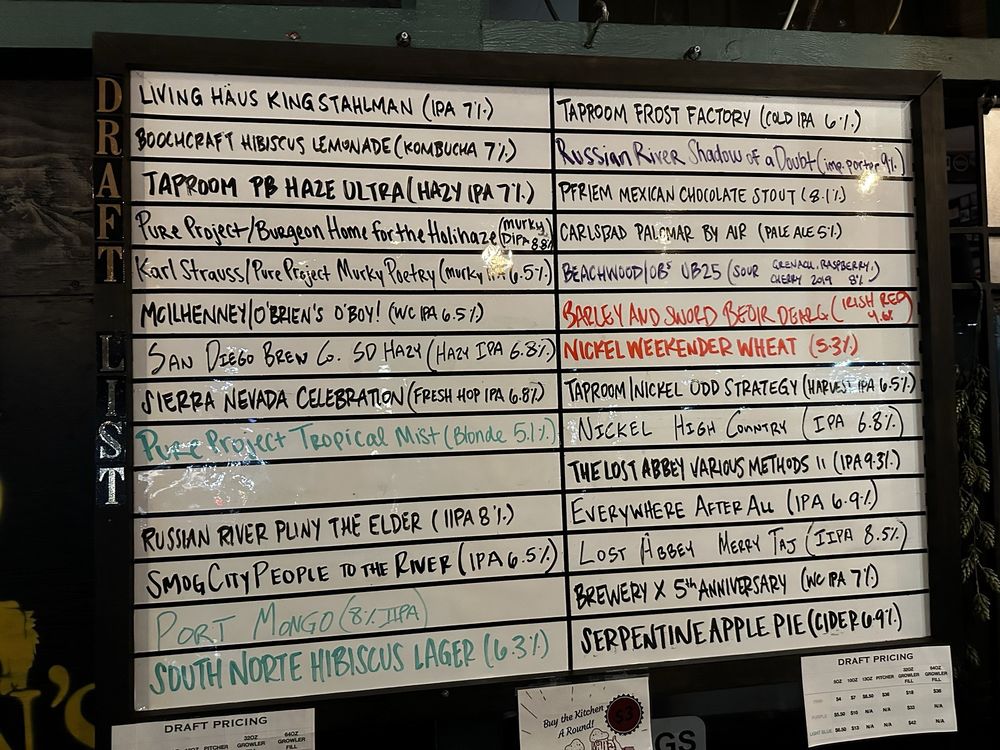 DRAFT LIST
LIVING HÄUS KING STAHLMAN (IPA 7%)
BOOCHCRAFT HIBISCUS LEMONADE (KOMBUCHA 7%)
TAPROOM PB HAZE ULTRA (HAZY IPA 7%)
Pure Project/Burgeon Home for the Holihaze (murky DIPA 8.8%
Karl Strauss/Pure Project Murky Poetry (murky IPA 6.5%)
MCILHENNEY/O'BRIEN'S O'BOY! (WC IPA 6.5%)
SAN DIEGO BREW CO. SD HAZY (HAZY IPA 6.8%)
SIERRA NEVADA CELEBRATION (FRESH HOP IPA 6.8%)
Pure Project Tropical Mist (Blonde 5.1%)
RUSSIAN RIVER PLINY THE ELDER (IIPA 8%)
SMOG CITY PEOPLE TO THE RIVER (IPA 6.5%)
PORT MONGO (8% IIPA)
SOUTH NORTE HIBISCUS LAGER (6.3%)
TAPROOM FROST FACTORY (COLD IPA 6%)
Russian River Shadow of a Doubt (imp. porter 9%)
PFRIEM MEXICAN CHOCOLATE STOUT (8.1%)
CARLSBAD PALOMAR BY AIR (PALE ALE 5%)
BEACHWOOD/OB'S UB25 (SOUR GRENACHE, RASPBERRY, CHERRY 2019 8%)
BARLEY AND SWORD BEOIR DEARG (IRISH RED 4.6%
NICKEL WEEKENDER WHEAT (5.3%)
TAPROOM/NICKEL ODD STRATEGY (HARVEST IPA 6.5%)
NICKEL HIGH COUNTRY (IPA 6.8%)
THE LOST ABBEY VARIOUS METHODS 11 (IPA 9.3%)
EVERYWHERE AFTER ALL (IPA 6.9%)
LOST ABBEY MERRY TAJ (IIPA 8.5%)
BREWERY X 5th ANNIVERSARY (WC IPA 7%)
SERPENTINE APPLE PIE (CIDER 6.9%)
DRAFT PRICING
PITCHER 32OZ GROWLER FILL 64OZ GROWLER FILL
Buy the Kitchen
A Round!
$3
GS
DRAFT PRICING
5OZ 10OZ 13OZ PITCHER 32OZ GROWLER FILL 64OZ GROWLER FILL
$4 $7 $8.50 $26 $18 $36
PURPLE $5.50 $10 N/A N/A $33 N/A
LIGHT BLUE $6.50 $13 N/A N/A $42 N/A